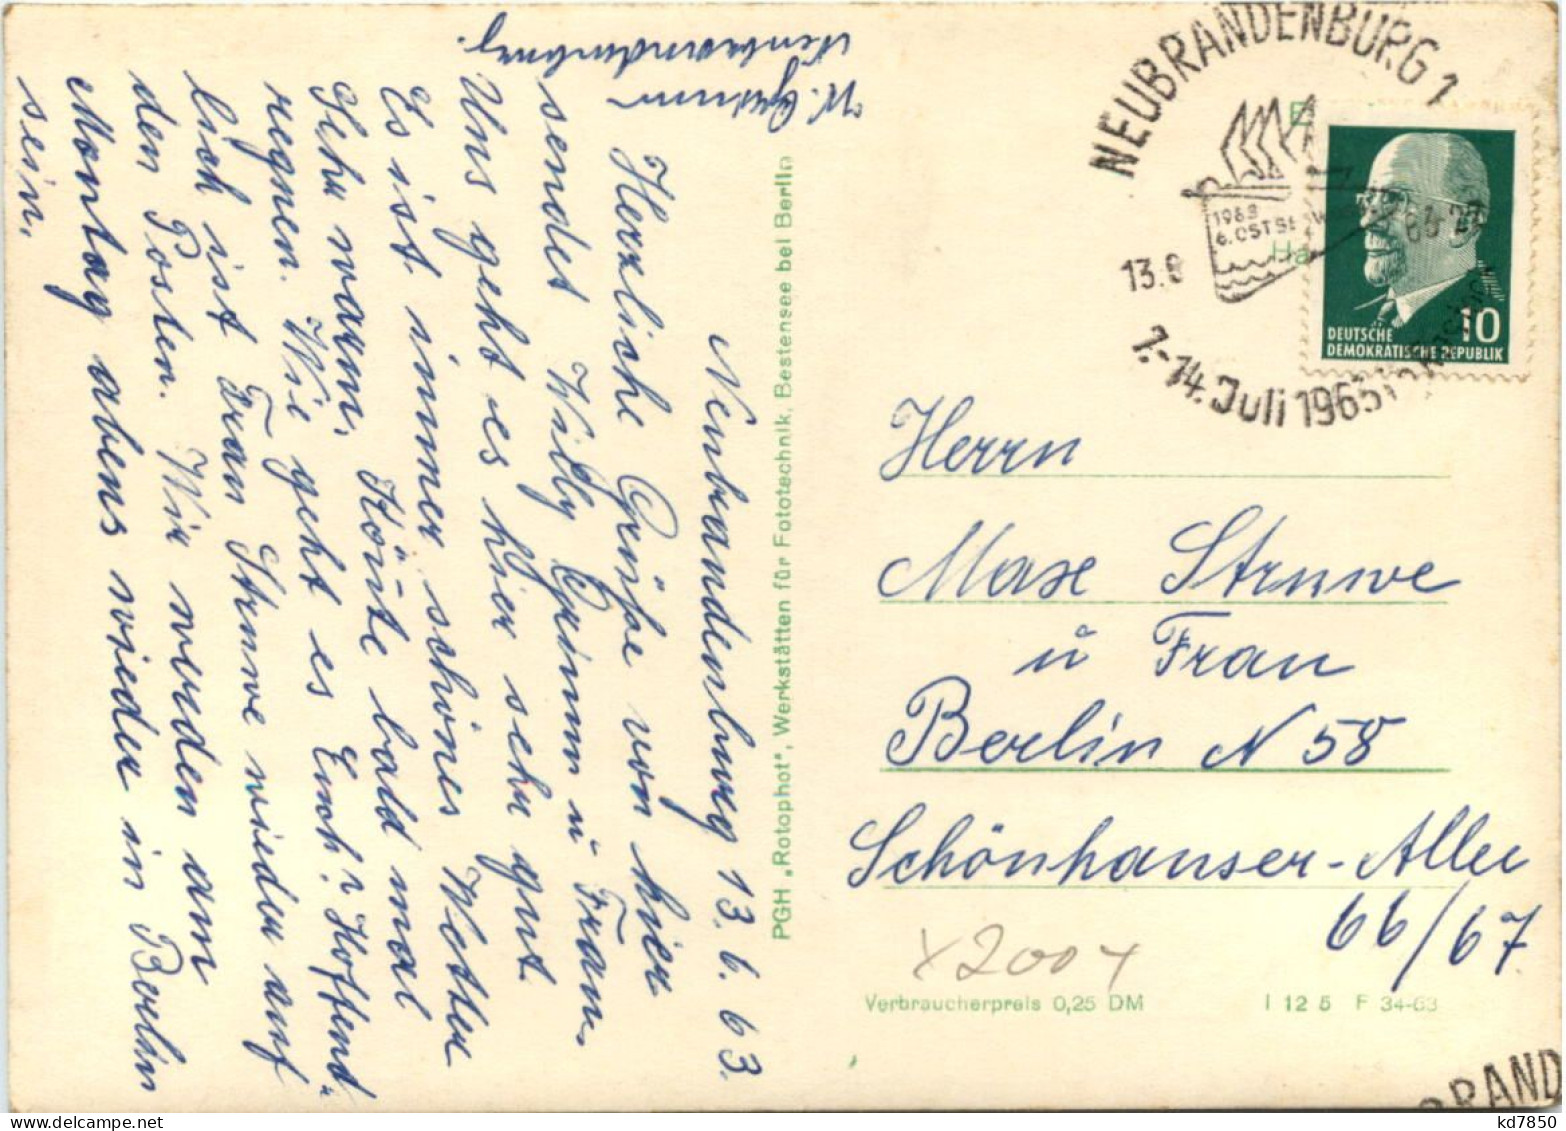 Neubrandenburg 13. 6. 63.
Herzliche Grüße von hier
sendet Willy Grimm u Frau.
Uns geht es hier sehr gut.
Es ist immer schönes Wetter
Sehr warm. Könte bald mal
regnen. Wie geht es Euch? Hoffend-
lich ist Frau Struwe wieder auf
den Posten. Wir werden am
Montag abens wieder in Berlin
sein.
W. Grimm
Neubrandenburg.
PGH „Rotophot", Werkstätten für Fototechnik, Bestensee bei Berlin
NEUBRANDENBURG 1
1963
6. OSTSEEWOCHE
13.6
63-22
7.-14. Juli 1963
DEUTSCHE
DEMOKRATISCHE REPUBLIK
10
Herrn
Max Struwe
u Frau
Berlin N 58
Schönhauser-Allee
66/67
x200x
Verbraucherpreis 0,25 DM
I 12 5 F 34-63
BRAND
kd7850